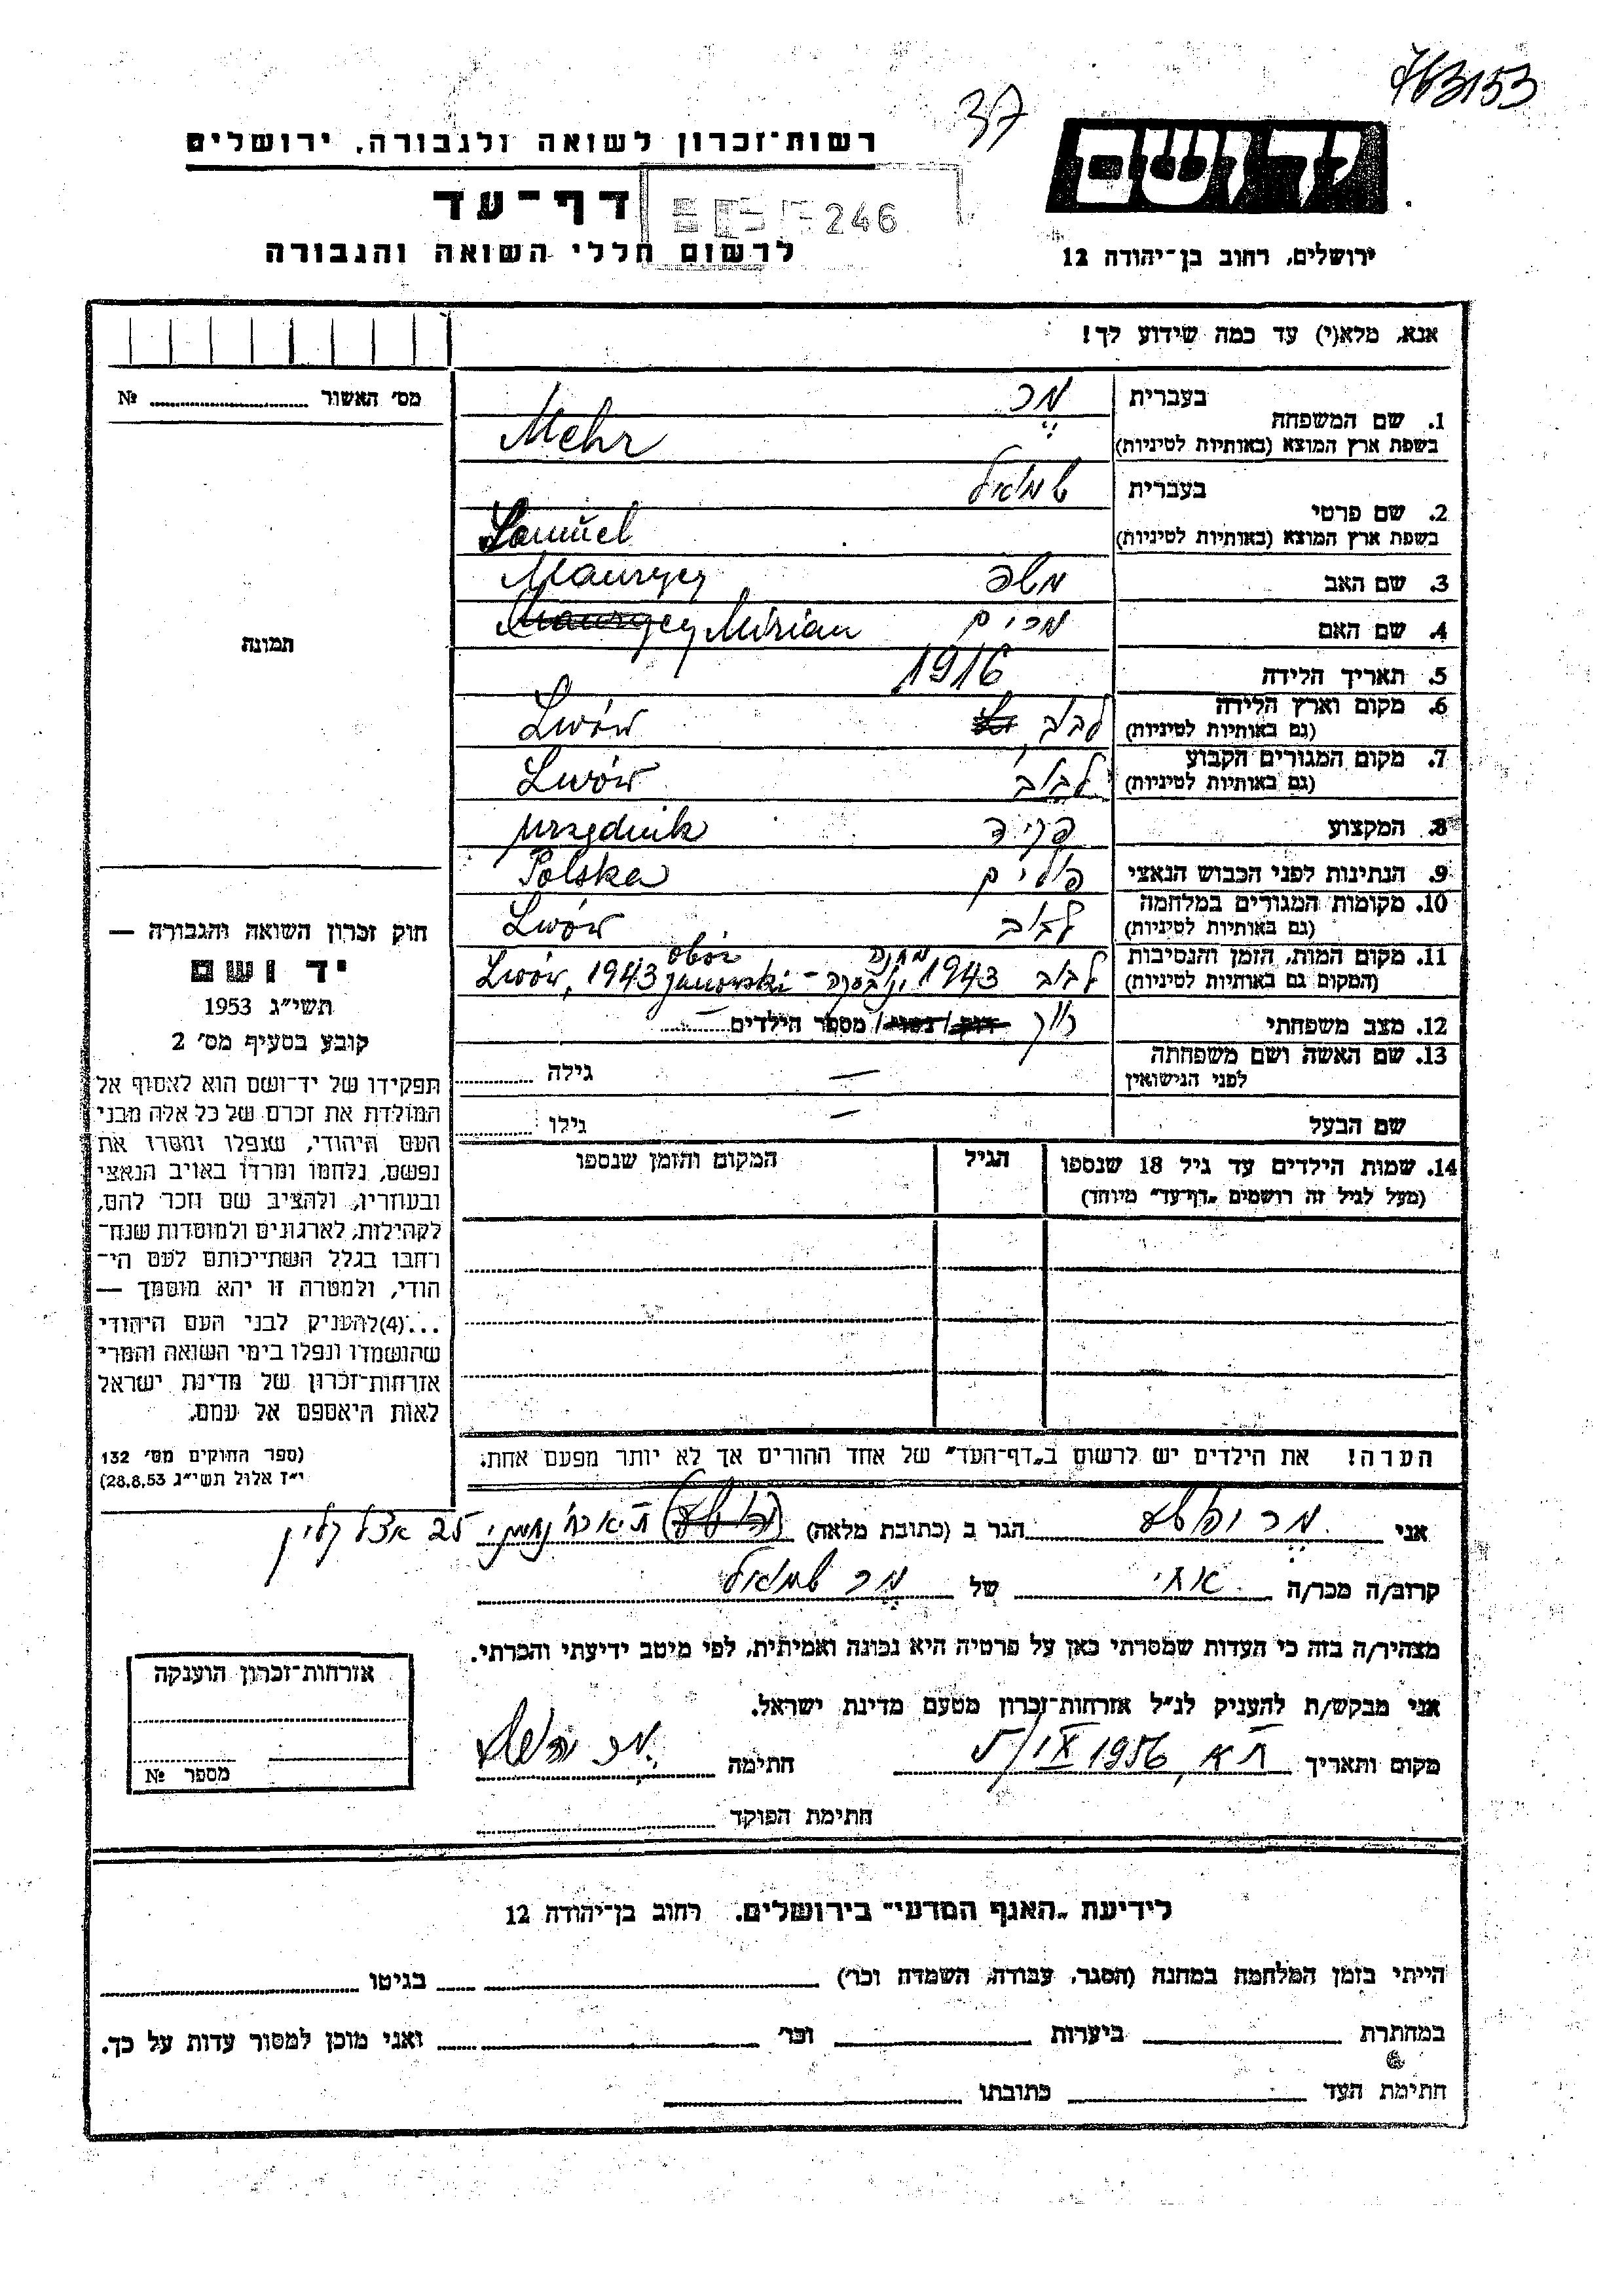 763153
37
יד ושם
רשות־זכרון לשואה ולגבורה, ירושלים
דף־עד
246
לרשום חללי השואה והגבורה
ירושלים, רחוב בן־יהודה 12
אנא, מלא(י) עד כמה שידוע לך!
מס' האשור № 
1. שם המשפחה
בעברית מר
בשפת ארץ המוצא (באותיות לטיניות) Mehr
2. שם פרטי
בעברית שמואל
בשפת ארץ המוצא (באותיות לטיניות) Samuel
3. שם האב משה Maurycy
4. שם האם מרים Mirian
5. תאריך הלידה 1916
6. מקום וארץ הלידה
(גם באותיות לטיניות) לבוב Lwów
7. מקום המגורים הקבוע
(גם באותיות לטיניות) לבוב Lwów
8. המקצוע פקיד urzędnik
9. הנתינות לפני הכבוש הנאצי פולנים Polska
10. מקומות המגורים במלחמה
(גם באותיות לטיניות) לבוב Lwów
11. מקום המות, הזמן והנסיבות
(המקום גם באותיות לטיניות) לבוב 1943 מחנה ינובסקה – Lwów, 1943 obóz janowski
12. מצב משפחתי רווק רווק / נשוי / מספר הילדים
13. שם האשה ושם משפחתה
לפני הנישואין — גילה
שם הבעל — גילו
14. שמות הילדים עד גיל 18 שנספו
(מעל לגיל זה רושמים „דף־עד" מיוחד)
הגיל
המקום והזמן שנספו
הערה! את הילדים יש לרשום ב„דף־העד" של אחד ההורים אך לא יותר מפעם אחת.
תמונה
חוק זכרון השואה והגבורה —
יד ושם
תשי"ג 1953
קובע בסעיף מס' 2
תפקידו של יד־ושם הוא לאסוף אל
המולדת את זכרם של כל אלה מבני
העם היהודי, שנפלו ומסרו את
נפשם, נלחמו ומרדו באויב הנאצי
ובעוזריו, ולהציב שם וזכר להם,
לקהילות, לארגונים ולמוסדות שנח־
רחבו בגלל השתייכותם לעם הי־
הודי, ולמטרה זו יהא מוסמך —
...(4)להעניק לבני העם היהודי
שהושמדו ונפלו בימי השואה והמרי
אזרחות־זכרון של מדינת ישראל
לאות היאספם אל עמם.
(ספר החוקים מס' 132
י"ז אלול תשי"ג 28.8.53)
אני מר יהושע הגר ב (כתובת מלאה) ת"א נחמני 25 אצל קליין
קרוב/ה מכר/ה אחי של מר שמואל
מצהיר/ה בזה כי העדות שמסרתי כאן על פרטיה היא נכונה ואמיתית, לפי מיטב ידיעתי והכרתי.
אני מבקש/ת להעניק לנ"ל אזרחות־זכרון מטעם מדינת ישראל.
מקום ותאריך ת"א, 1956 חתימה מר יהושע
חתימת הפוקד
אזרחות־זכרון הוענקה
מספר №
לידיעת „האגף המדעי" בירושלים. רחוב בן־יהודה 12
הייתי בזמן המלחמה במחנה (הסגר, עבודה, השמדה וכו') בגיטו
במחתרת ביערות וכו' ואני מוכן למסור עדות על כך.
חתימת העד כתובתו